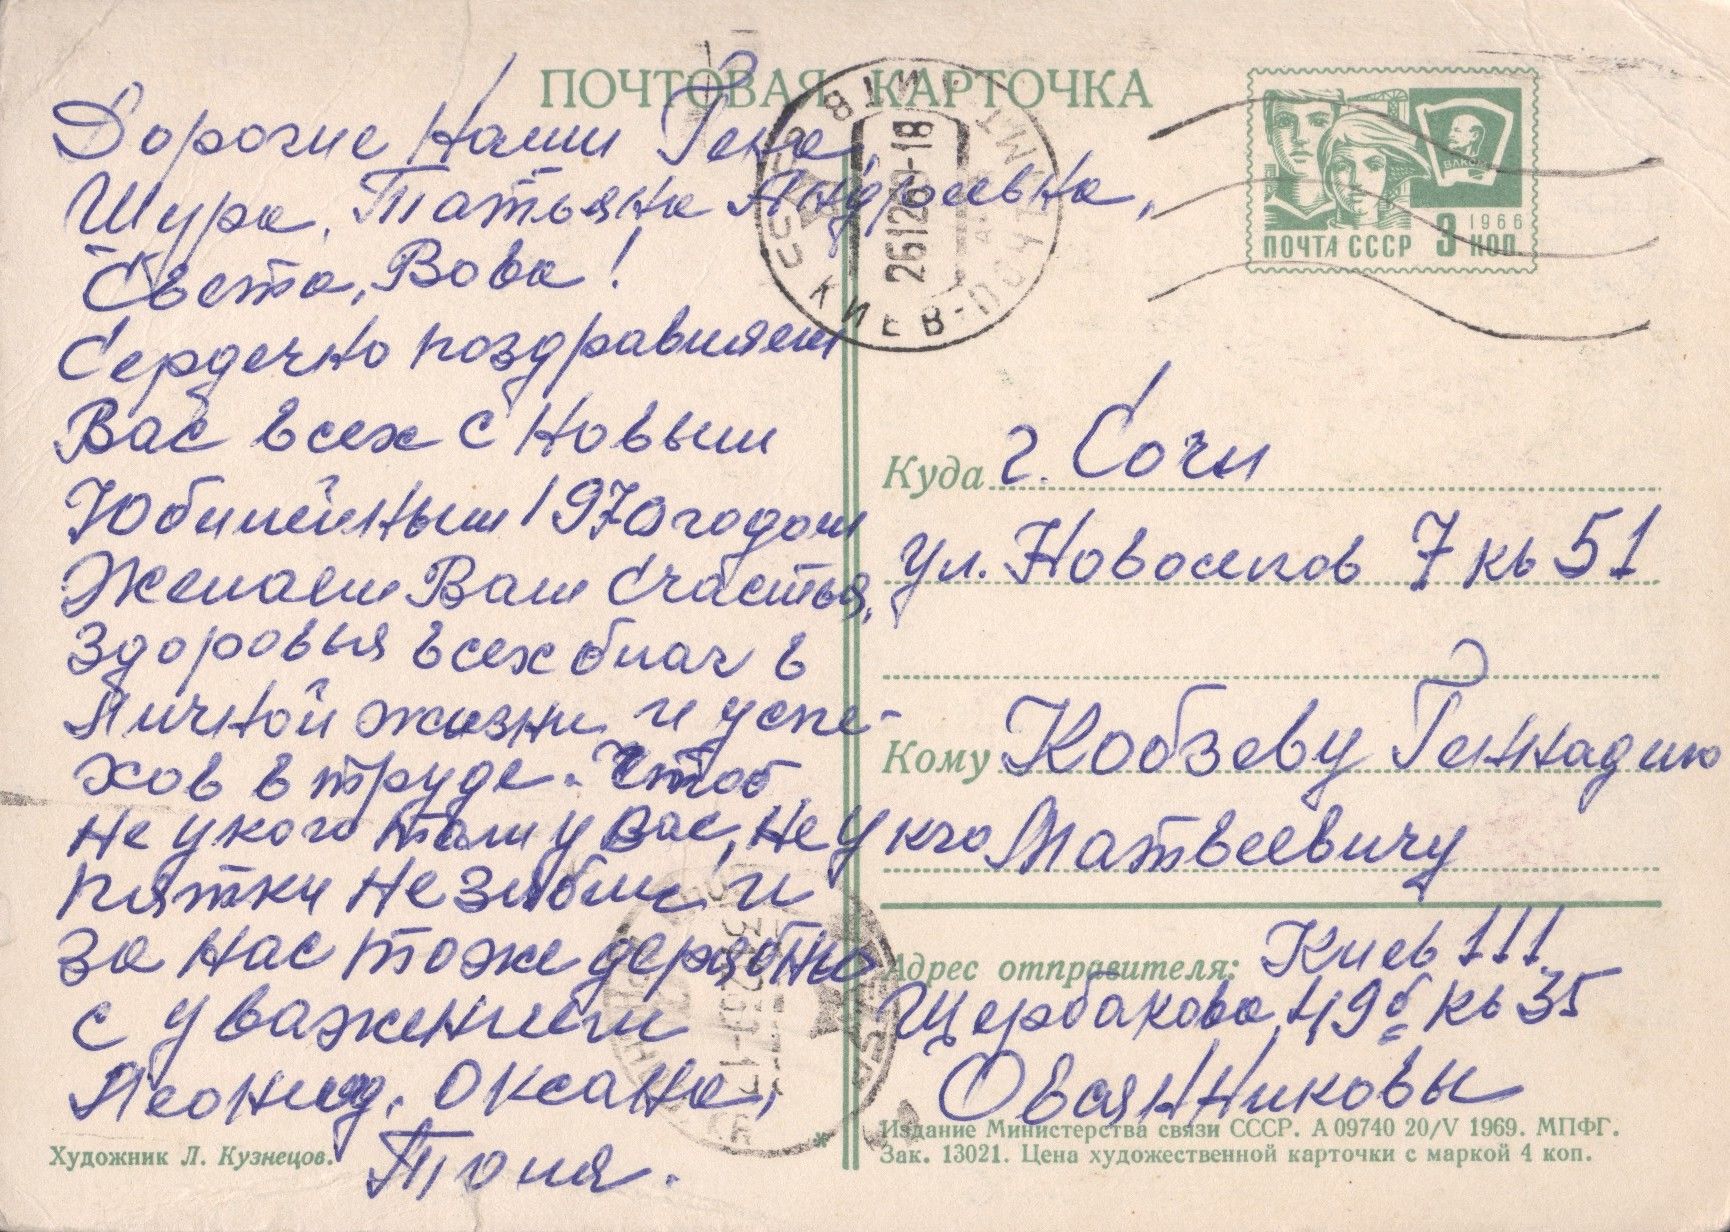 ПОЧТОВАЯ КАРТОЧКА
Дорогие Наши Гена,
Шура, Татьяна Андреевна,
Света, Вова!
Сердечно поздравляем
Вас всех с Новым
Юбилейным 1970 годом
Желаем Вам Счастья,
Здоровья всех благ в
Личной жизни и успе-
хов в труде. Чтоб
не у кого там у Вас, не у кго
пятки не зябли и
за нас тоже
с уважением
Леонид, Оксана,
Тоня.
Художник Л. Кузнецов.
КИЕВ-ПОЧТАМТ
26 12 69-18
СССР
ВЛКСМ
1966
ПОЧТА СССР 3 КОП.
Куда г. Сочи
ул. Новоселов 7 кв 51
Кому Кобзеву Геннадию
Матвеевичу
Адрес отправителя: Киев 111
Щербакова 49б кв 35
Овсянниковы
Издание Министерства связи СССР. А 09740 20/V 1969. МПФГ.
Зак. 13021. Цена художественной карточки с маркой 4 коп.